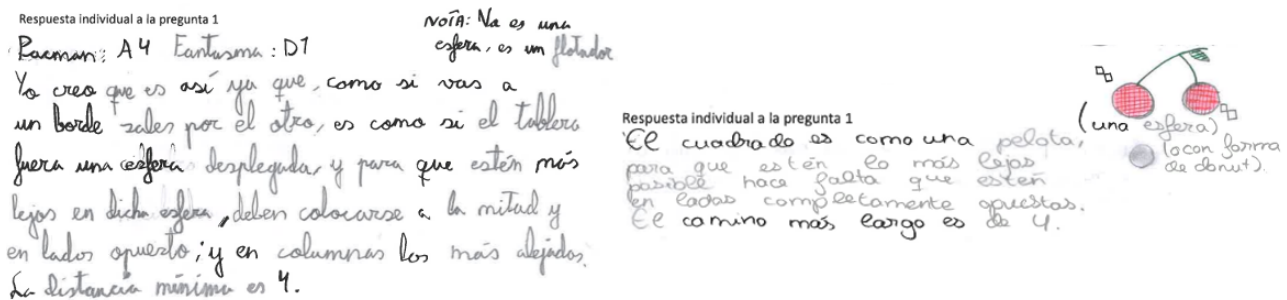 Respuesta individual a la pregunta 1
Pacman: A4 Fantasma: D1
NOTA: No es una
esfera, es un flotador
Yo creo que es así ya que, como si vas a
un borde sales por el otro, es como si el tablero
fuera una esfera desplegada, y para que estén más
lejos en dicha esfera, deben colocarse a la mitad y
en lados opuesto; y en columnas los más alejados.
La distancia mínima es 4.
Respuesta individual a la pregunta 1
El cuadrado es como una pelota,
(una esfera)
(o con forma
de donut).
para que estén lo más lejos
posible hace falta que estén
en lados completamente opuestos.
El camino más largo es de 4.